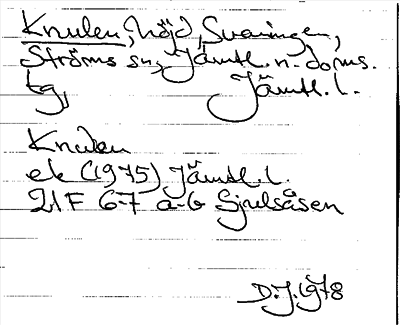 Knulen, höjd, Svaningen,
Ströms sn, Jämtl. n. doms.
tg, Jämtl. l.
Knulen
ek (1975) Jämtl. l.
21F 6-7 a-b Sjulsåsen
D.J. 1978